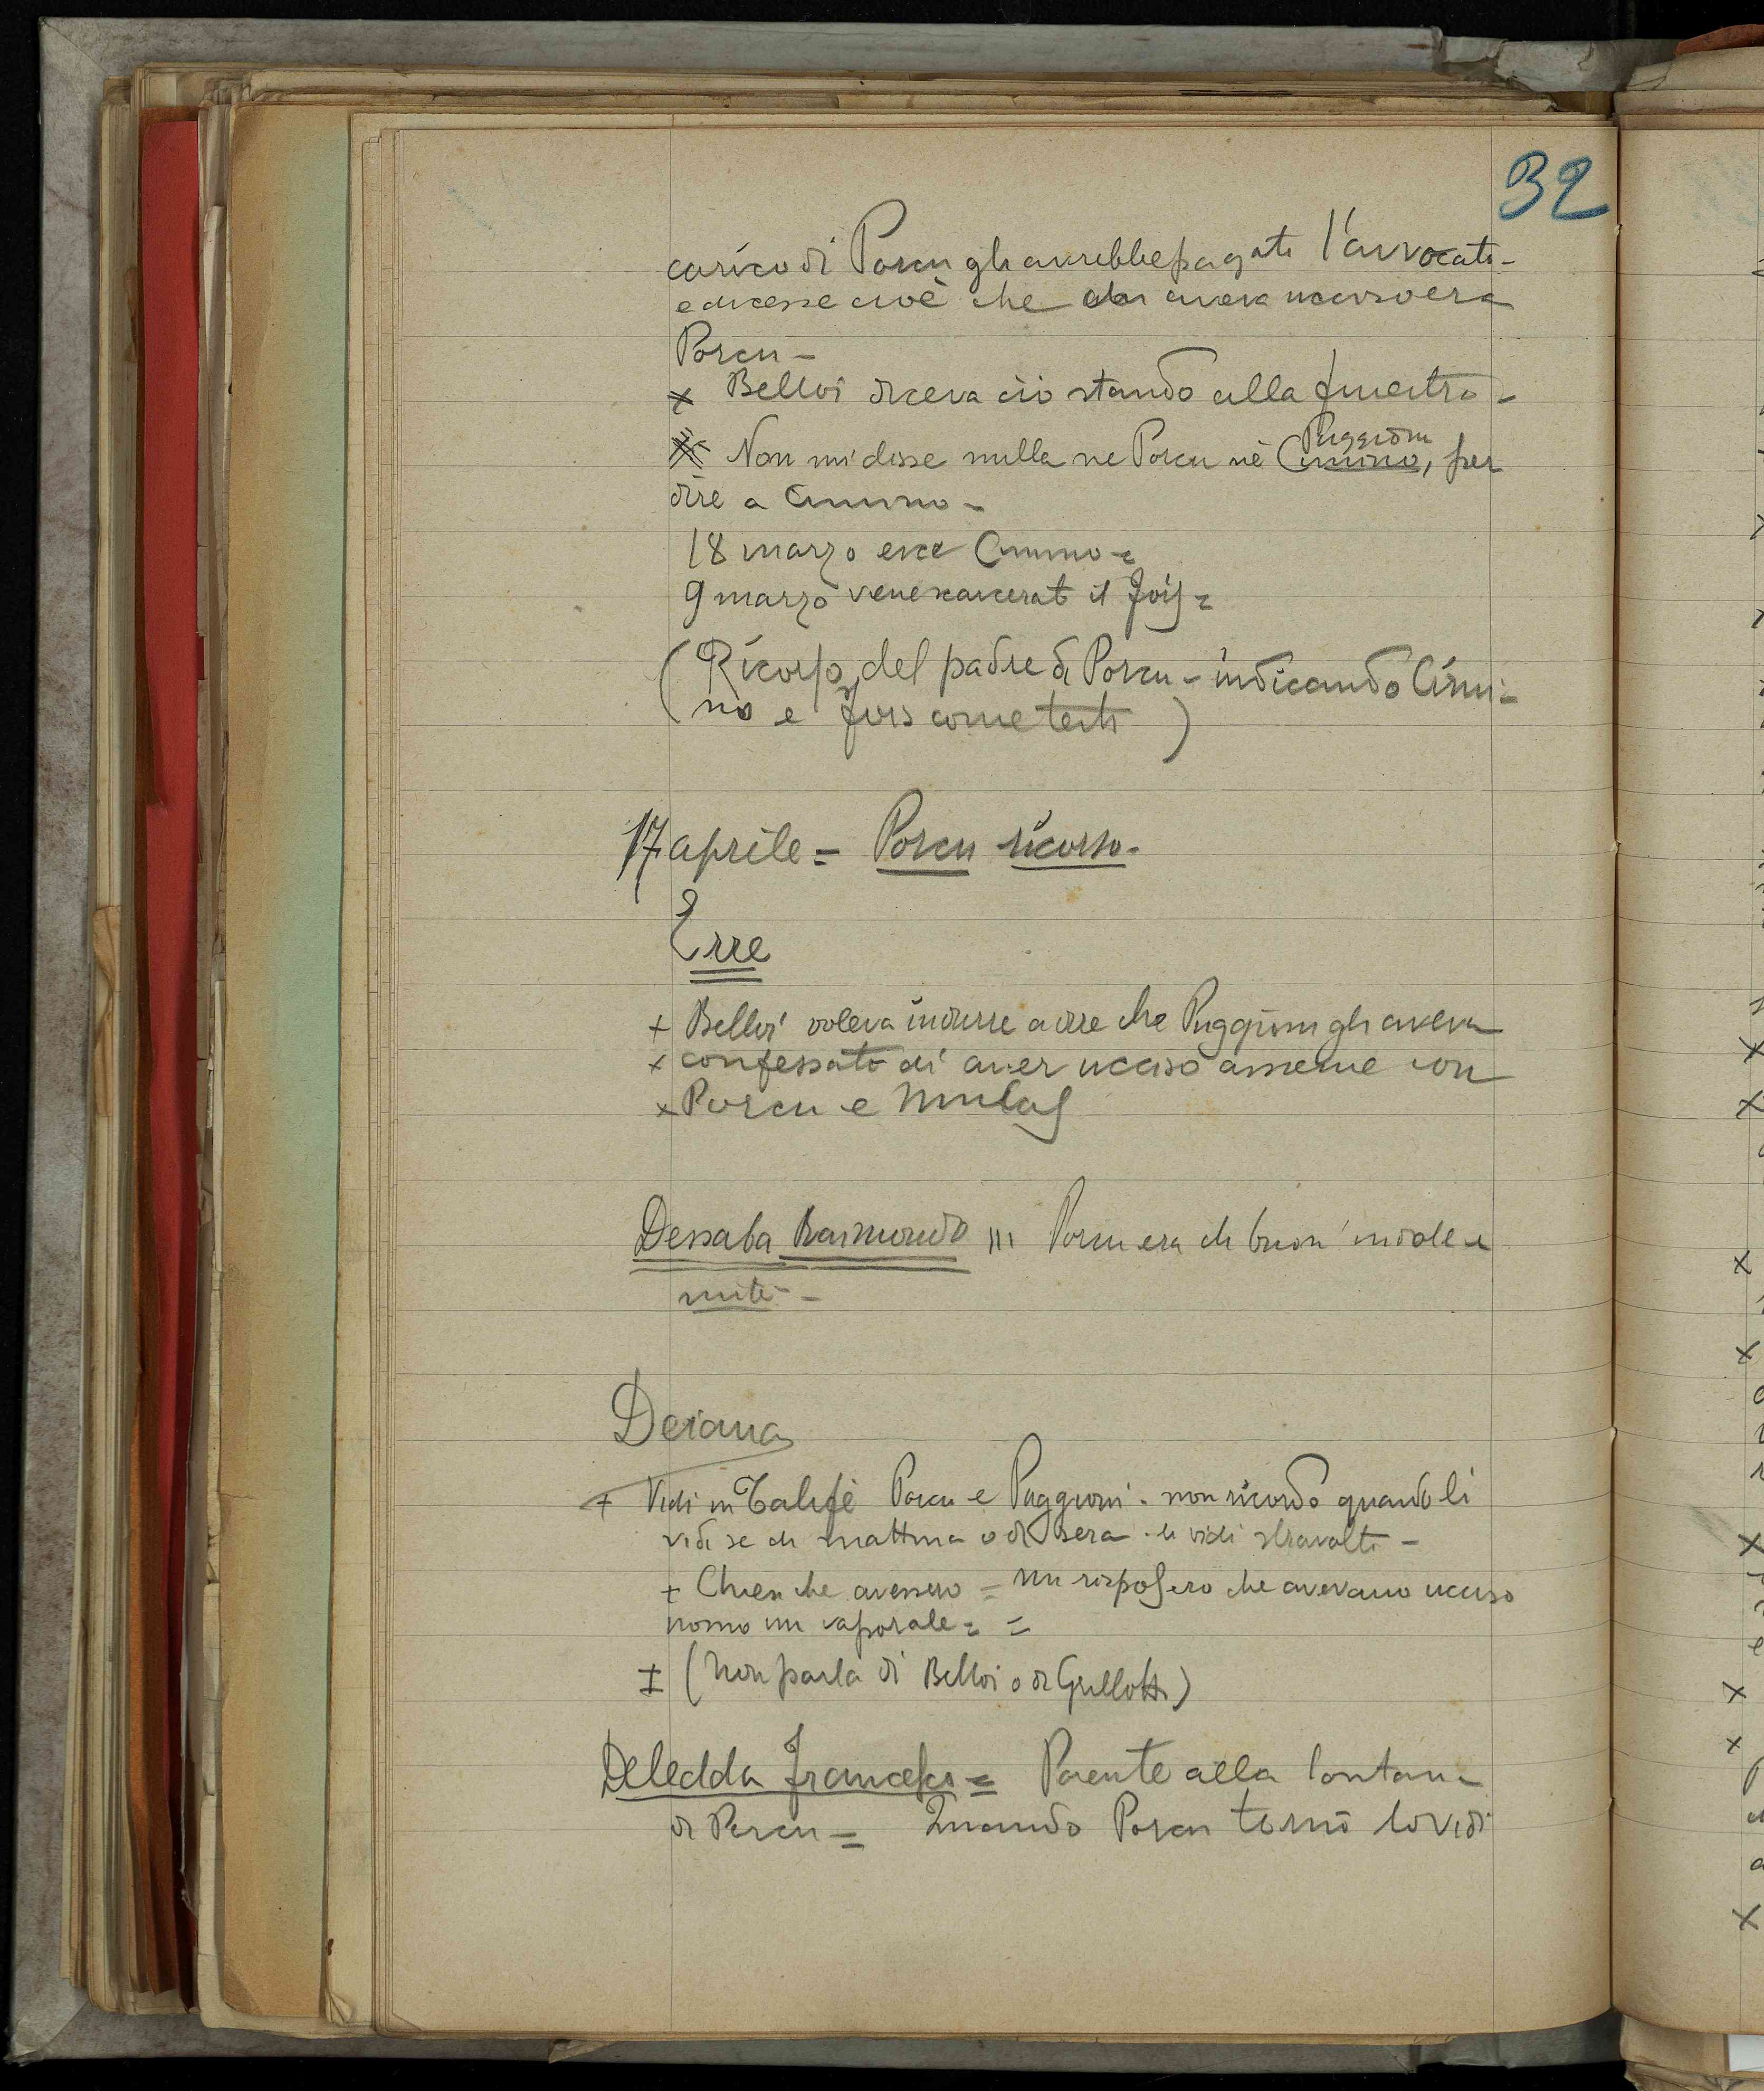 32
carico di Porcu gli avrebbe pagato l'avvocato -
e dicesse cioè che chi aveva ucciso era
Porcu -
x Belloi diceva ciò stando alla finestra -
x Non mi disse nulla ne Porcu nè Cimino, per
Puggioni
dire a Cimino -
18 marzo esce Cimino =
9 marzo venne scarcerato il Fois =
(Ricorso del padre di Porcu - indicando Cimi-
no e Fois come testi)
17 aprile = Porcu ricorso -
Erre
+ Belloi voleva indurre a dire che Puggioni gli aveva
x confessato di aver ucciso assieme con
x Porcu e Mulas
Dessaba Raimondo ||| Porcu era di buon indole e
mite -
Deiana
+ Vidi in Porcu e Puggioni - non ricordo quando li
vidi se di mattina o di sera - li vidi stravolti -
+ Chiesi che avessero = mi risposero che avevano ucciso
uomo un caporale = =
± (non parla di Belloi o di Grullotti)
Deledda Francesco = Parente alla lontana
di Porcu = Quando Porcu tornò lo vidi